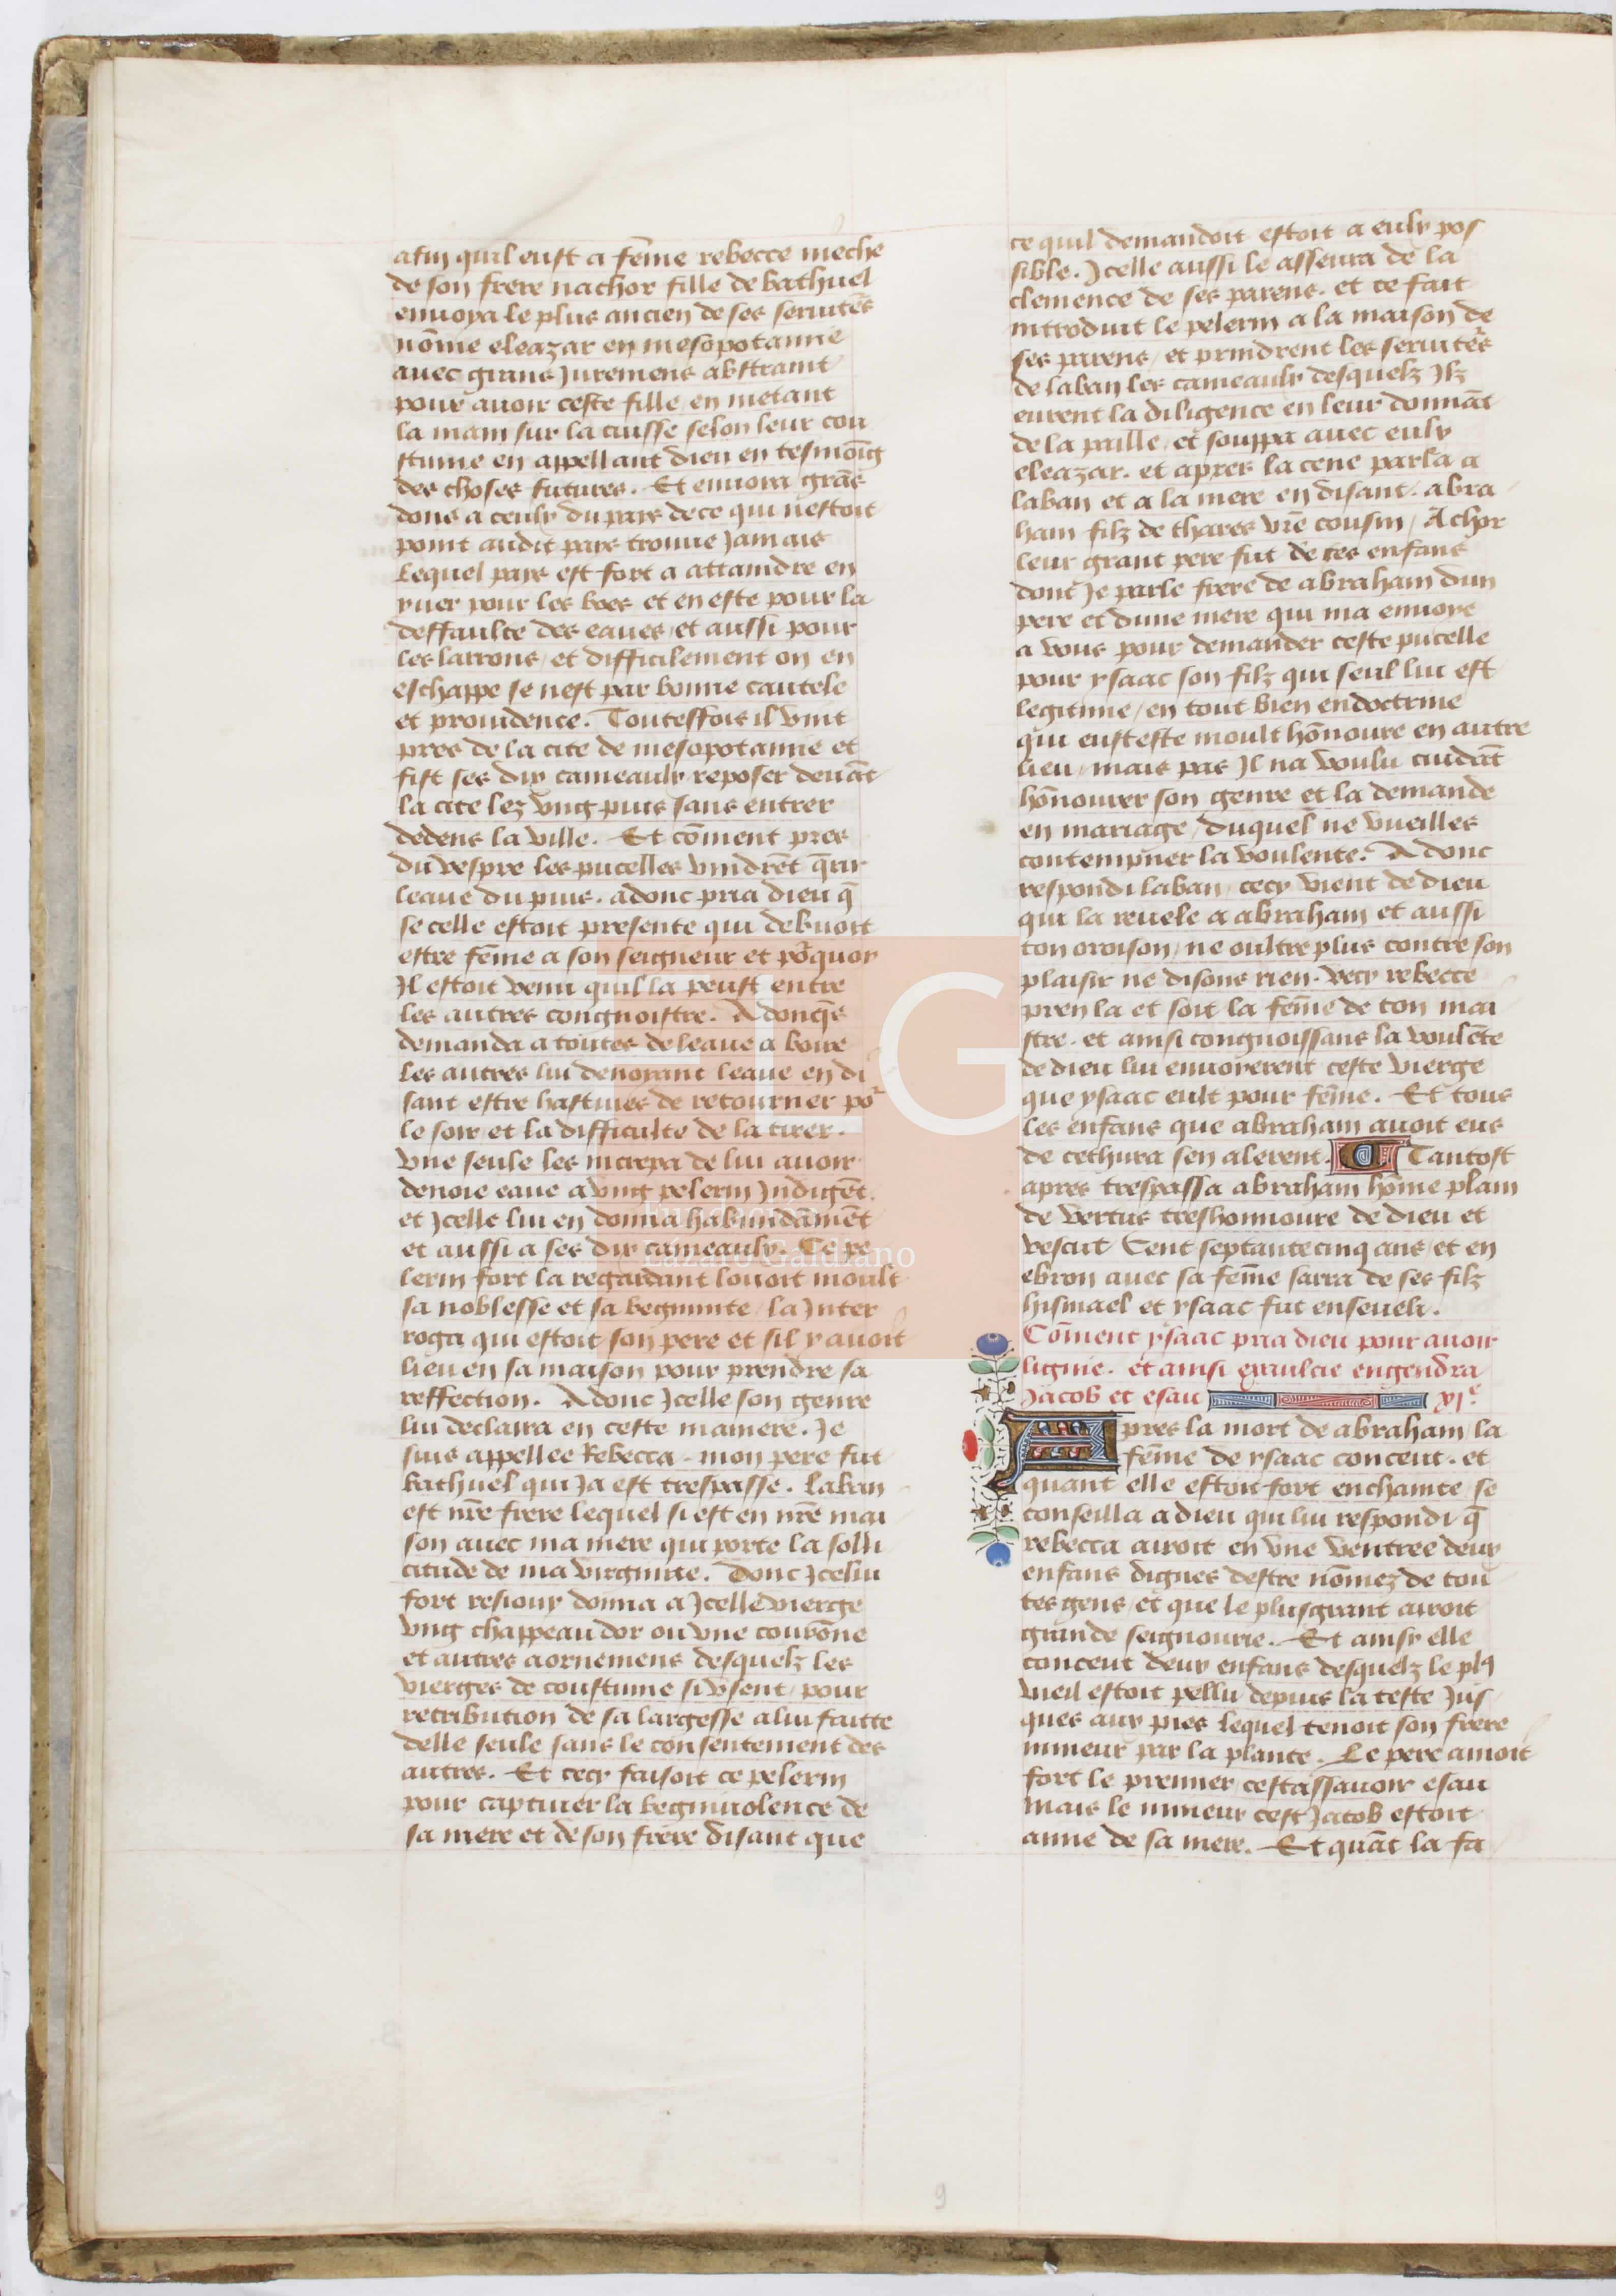 afin quil eust a fẽme rebecce nieche
de son frere nachor fille de bathuel
enuoya le plus ancien de ses seruitẽs
nõme eleazar en mesopotamie
auec grans Juremens abstraint
pour auoir ceste fille en metant
la main sur la cuisse selon leur cou
stume en appellant dieu en tesmoĩg
des choses futures. Et enuoia grãs
dons a ceulx du pays de ce qui nestoit
point audit pays trouue Jamais
Lequel pays est fort a attaindre en
yuer pour les boes et en este pour la
deffaulte des eaues et aussi pour
les larrons / et difficilement on en
eschappe se nest par bonne cautele
et prouidence. Touteffois il vint
pres de la cite de mesopotamie et
fist ses dix cameaulx reposer deuãt
la cite lez vng puis sans entrer
dedens la ville. Et cõment pres
du vespre les pucelles vindrẽt q̃rir
leaue du puis. adonc pria dieu q̃
se celle estoit presente qui debuoit
estre fẽme a son seigneur et põquoy
Jl estoit venu quil la peust entre
les autres congnoistre. Adonq̃s
demanda a toutes de leaue a boire
Les autres lui denoyant leaue en di
sant estre hastiues de retourner põ
le soir et la difficulte de la tirer.
vne seule les increpa de lui auoir
denoie eaue a vng pelerin Jndigẽt.
et Jcelle lui en donna habundãmẽt
et aussi a ses dix cameaulx. Ce pe
lerin fort la regardant louoit moult
sa noblesse et sa begninite / la Jnter
roga qui estoit son pere et sil y auoit
lieu en sa maison pour prendre sa
reffection. Adonc Jcelle son genre
lui declaira en ceste maniere. Je
suis appellee Rebecca. mon pere fut
bathuel qui Ja est trespasse. Laban
est nr̃e frere lequel si est en nr̃e mai
son auec ma mere qui porte la solli
citude de ma virginite. Donc Jcelui
fort resiouy donna a Jcelle vierge
vng chappeau dor ou vne courõne
et autres aornemens desquelz les
vierges de coustume si vsent / pour
retribution de sa largesse a lui faitte
delle seule sans le consentement des
autres. Et cecy faisoit ce pelerin
pour captiuer la begniuolence de
sa mere et de son frere disant que
ce quil demandoit estoit a eulx pos
sible. Jcelle aussi le asseura de la
clemence de ses parens. et ce fait
introduit le pelerin a la maison de
ses parens / et prindrent les seruitẽs
de laban les cameaulx desquelz Jlz
eurent la diligence en leur donnãt
de la paille / et souppa auec eulx
eleazar. et apres la cene parla a
laban et a la mere en disant. abra
ham filz de thares vr̃e cousin / Achor
leur grant pere fut de ces enfans
dont Je parle frere de abraham dun
pere et dune mere qui ma enuoye
a vous pour demander ceste pucelle
pour ysaac son filz qui seul lui est
legitime / en tout bien endoctrine
qui eust este moult hõnoure en autre
lieu / mais pas Jl na voulu cuidãt
hõnourer son genre et la demande
en mariage / duquel ne vueilles
contempner la voulente. Adonc
respondi laban / cecy vient de dieu
qui la reuele a abraham et aussi
ton oroison / ne oultre plus contre son
plaisir ne disons rien. vecy rebecce
pren la et soit la fẽme de ton mai
stre. et ainsi congnoissans la voulẽte
de dieu lui enuoyerent ceste vierge
que ysaac eult pour fẽme. Et tous
les enfans que abraham auoit eus
de cethura sen alerent. Tantost
apres trespassa abraham hõme plain
de vertus treshonnoure de dieu et
vescut Cent septante cinq ans / et en
ebron auec sa fẽme sarra de ses filz
hismael et ysaac fut enseueli.
Cõment ysaac pria dieu pour auoir
lignie. et ainsi exaulcie engendra
Jacob et esau xje.
Apres la mort de abraham / la
fẽme de ysaac conceut. et
quant elle estoit fort enchainte se
conseilla a dieu qui lui respondi q̃
rebecca auroit en vne ventree deux
enfans dignes destre nõmez de tou
tes gens / et que le plusgrant auroit
grande seignourie. Et ainsy elle
conceut deux enfans desquelz le plꝰ
vieil estoit pellu depuis la teste Jus
ques aux pies lequel tenoit son frere
mineur par la plante. Le pere amoit
fort le premier / cestassauoir esau
Mais le mineur cest Jacob estoit
ame de sa mere. Et quãt la fa
FLG
Fundación
Lázaro Galdiano
9